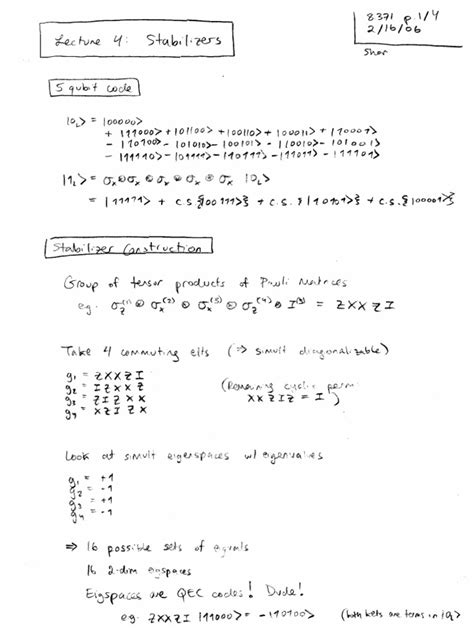 Lecture 4: Stabilizers
8371 p.1/4
2/16/06
Shor
5 qubit code
|0_L> = |00000>
+ |11000> + |01100> + |00110> + |00011> + |10001>
- |10100> - |01010> - |00101> - |10010> - |01001>
- |11110> - |01111> - |10111> - |11011> - |11101>
|1_L> = σx ⊗ σx ⊗ σx ⊗ σx ⊗ σx |0_L>
= |11111> + c.s.{|00111>} + c.s.{|10101>} + c.s.{|00001>}
Stabilizer Construction
Group of tensor products of Pauli matrices
eg. σz⁽¹⁾ ⊗ σx⁽²⁾ ⊗ σx⁽³⁾ ⊗ σz⁽⁴⁾ ⊗ I⁽⁵⁾ = ZXXZI
Take 4 commuting elts (⇒ simult diagonalizable)
g1 = ZXXZI
g2 = IZXXZ
g3 = ZIZXX
g4 = XZIZX
(Remaining cyclic perm
XXZIZ = I )
Look at simult eigenspaces w/ eigenvalues
g1 = +1
g2 = -1
g3 = +1
g4 = -1
⇒ 16 possible sets of eigvals
16 2-dim eigspaces
Eigspaces are QEC codes! Dude!
eg. ZXXZI |11000> = -|10100> (both kets are terms in |0_L>)